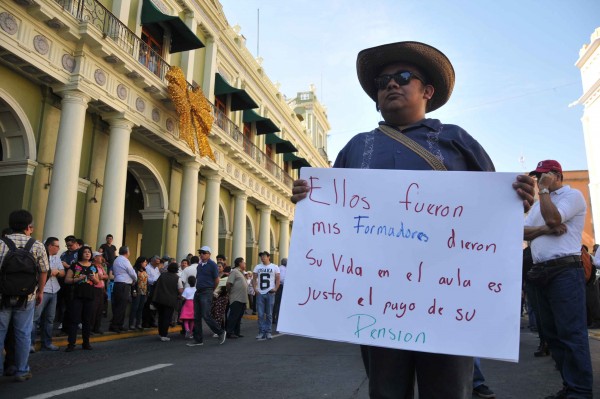 Ellos fueron
mis Formadores dieron
Su Vida en el aula es
justo el pago de su
Pension
6